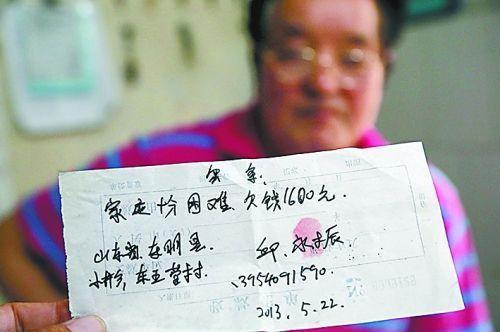 欠条.
家庭十分困难.欠钱1600元.
山东省.东明
小井乡,东王营村.
13954091590.
2013.5.22.